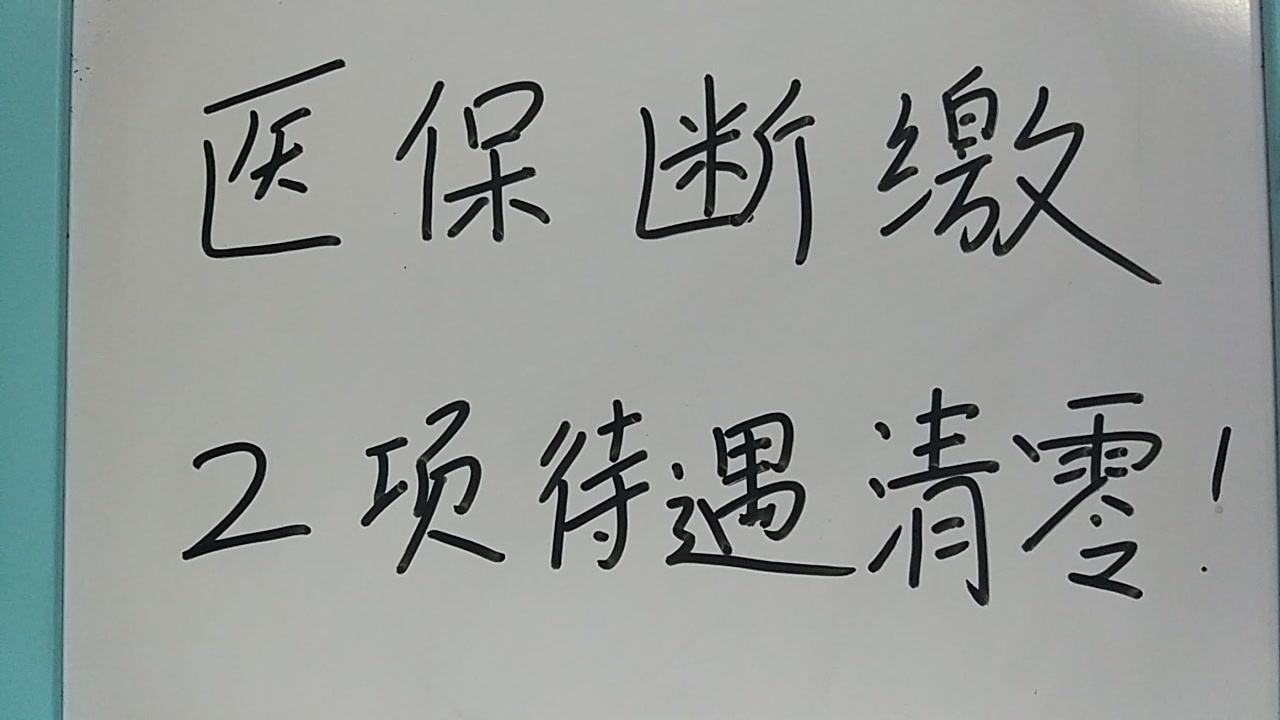 医保断缴
2项待遇清零!